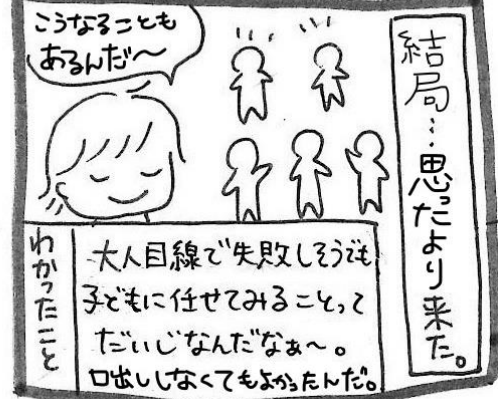 結局…思ったより来た。
こうなることも
あるんだ〜
わかったこと
大人目線で失敗しそうでも
子どもに任せてみることって
だいじなんだなぁ〜。
口出ししなくてもよかったんだ。